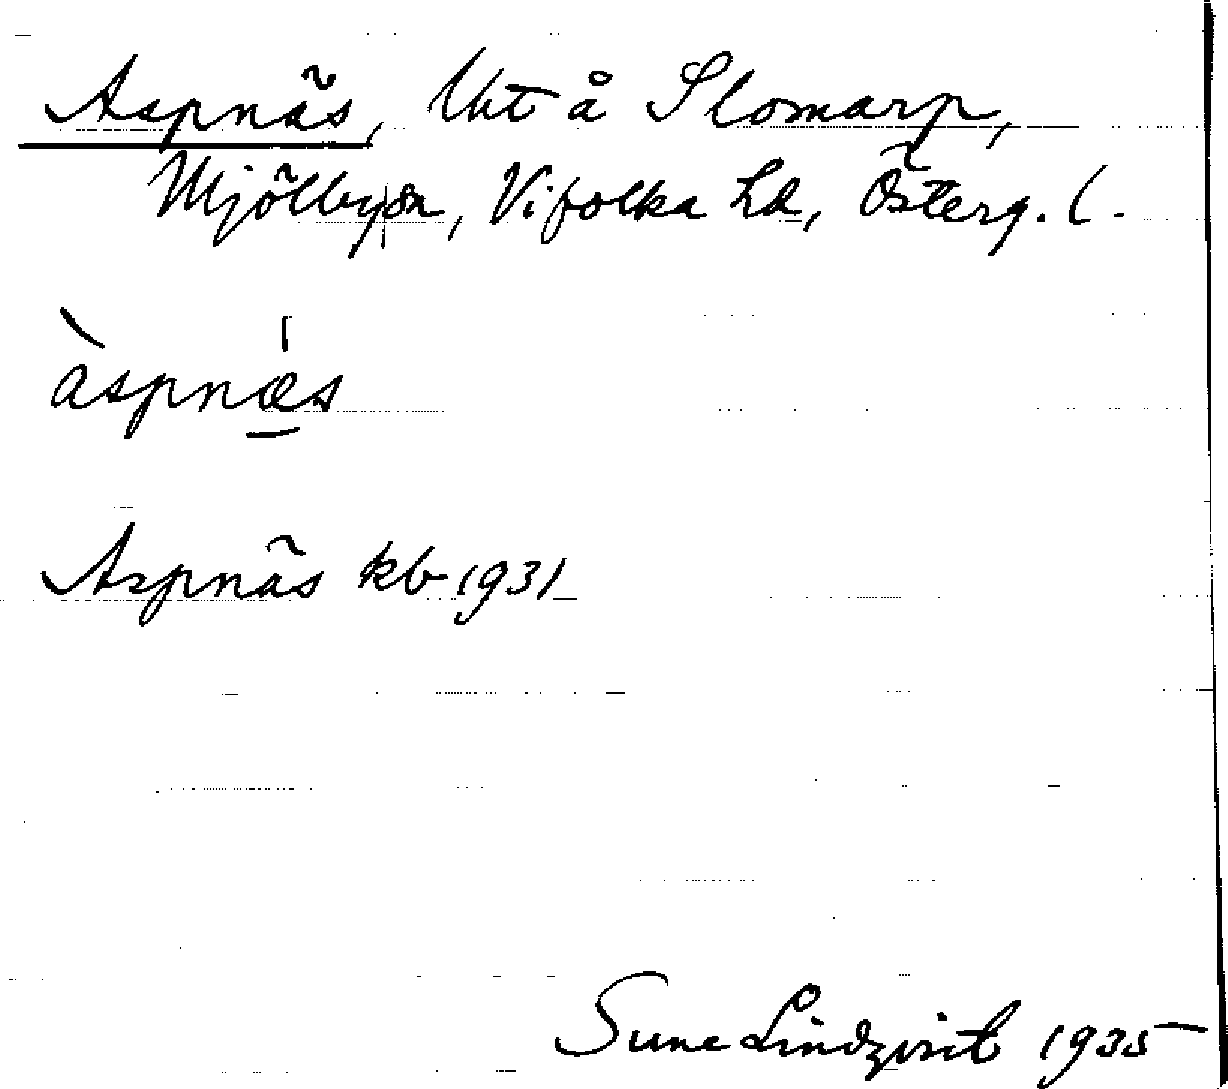 Aspnäs, Uht å Slomarp,
Mjölby sn, Vifolka hd, Österg. l.
àspnǽ̱s
Aspnäs kb 1931
Sune Lindqvist 1935